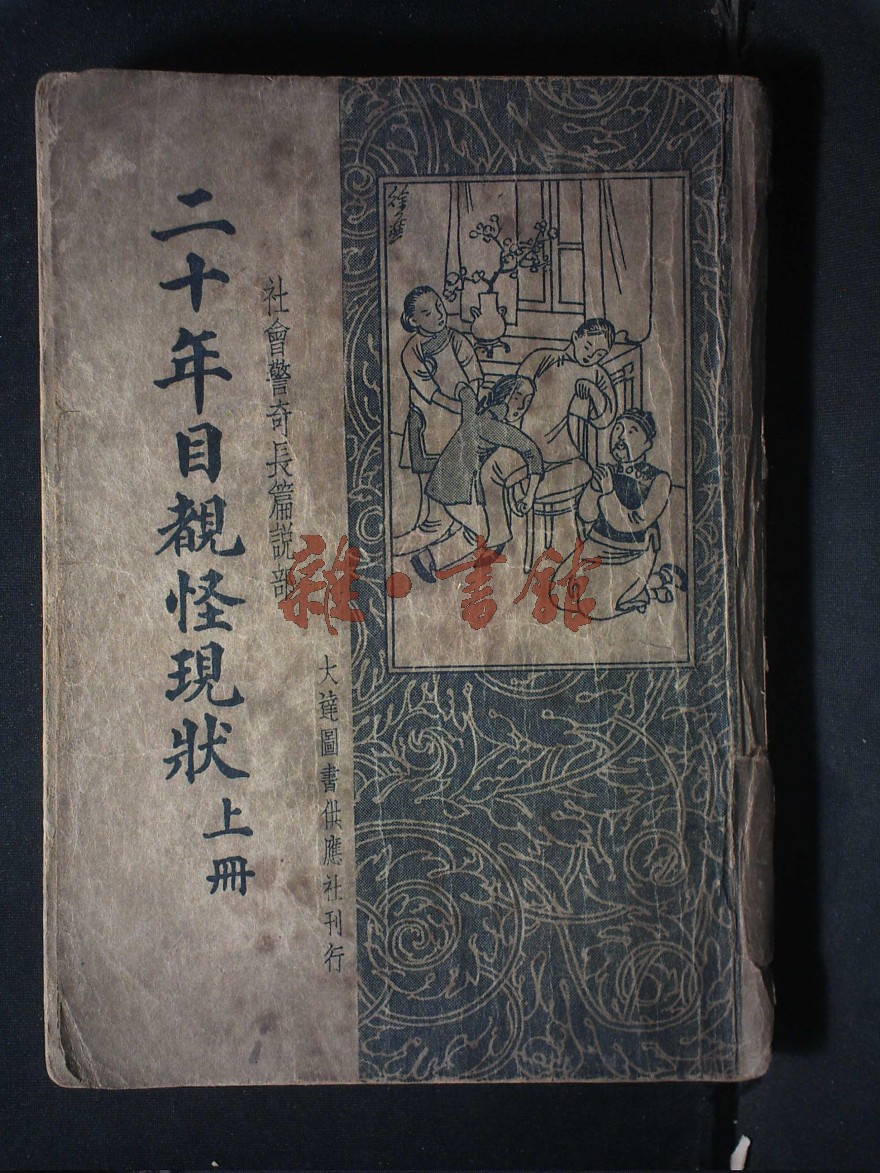 社會警奇長篇説部
二十年目覩怪現狀 上冊
大達圖書供應社刊行
雜·書館